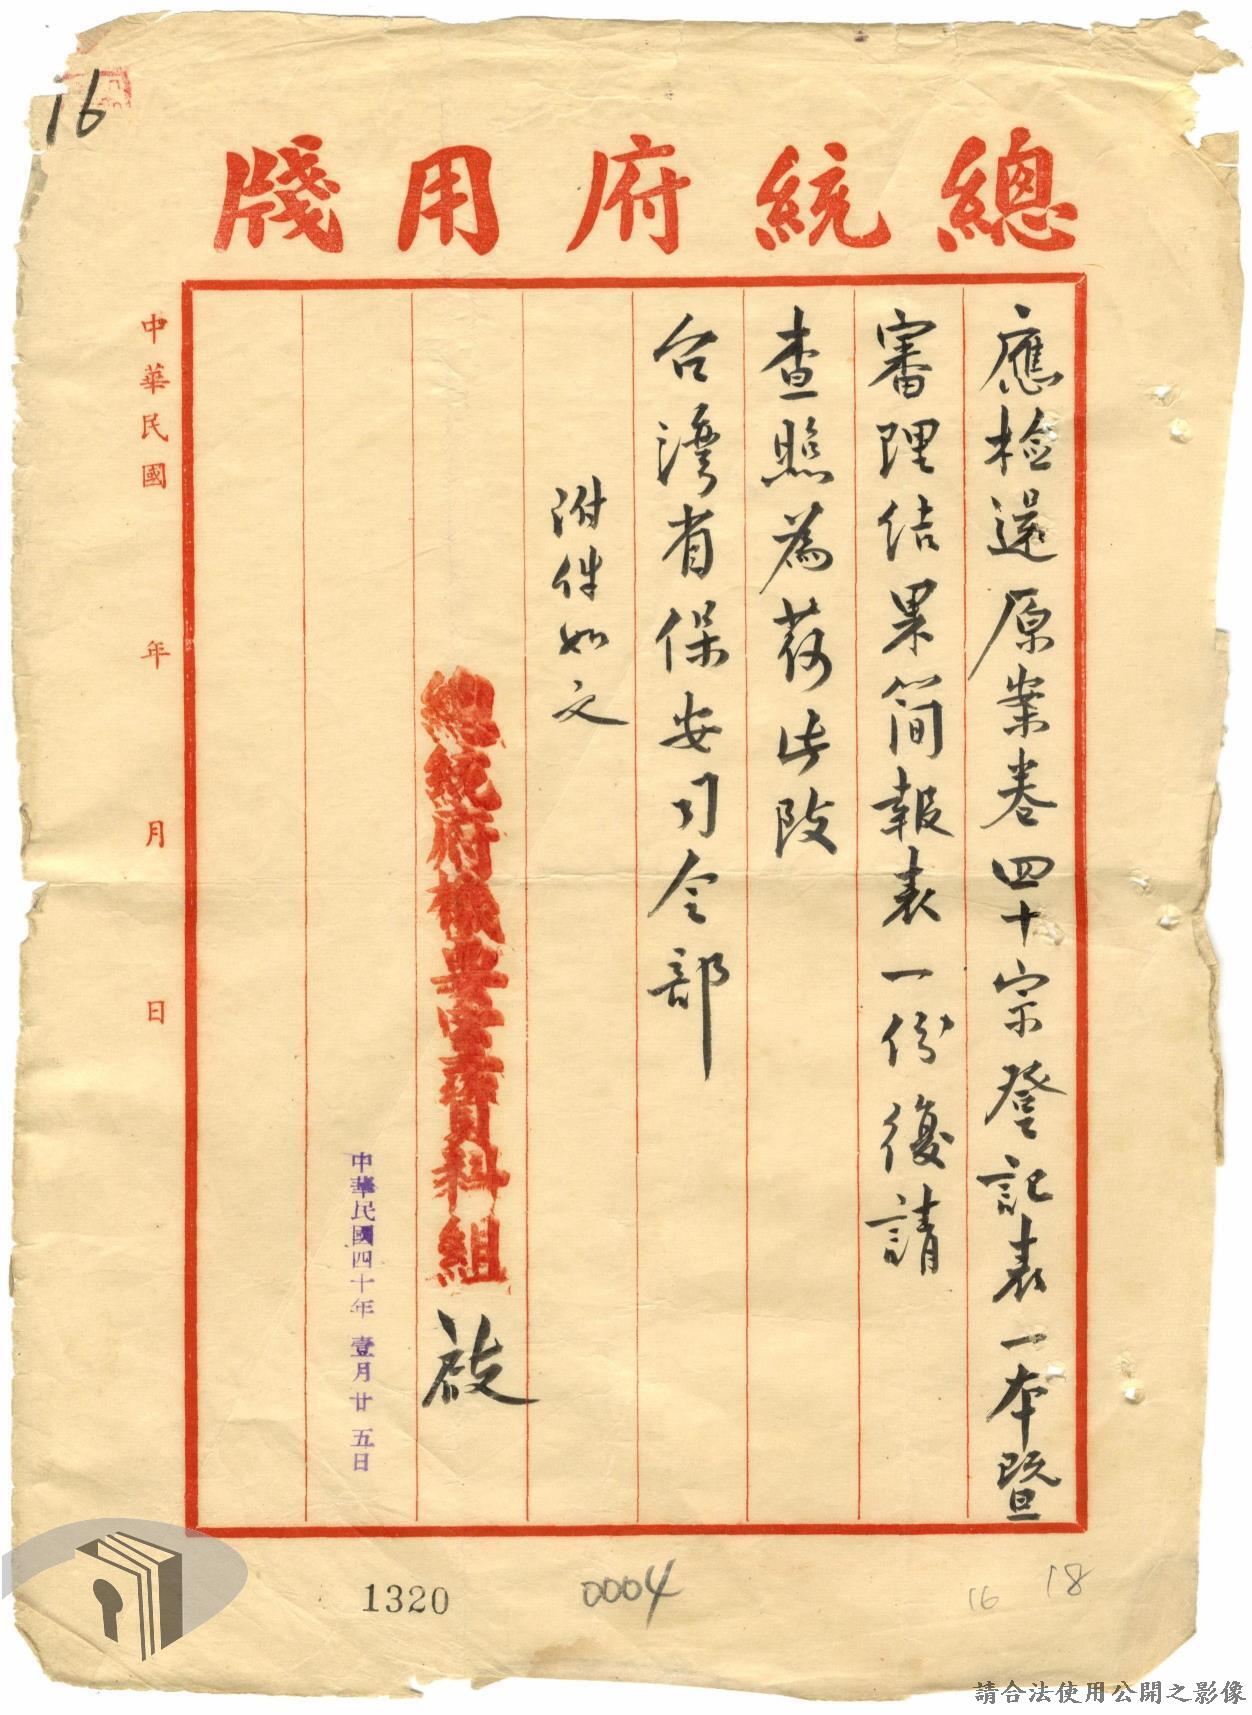 16
總統府用牋
應檢還原案卷四十宗登記表一本暨
審理結果簡報表一份復請
查照為荷此致
台灣省保安司令部
附件如文
總統府機要室資料組 啟
中華民國四十年壹月廿五日
中華民國 年 月 日
1320
0004
16
18
請合法使用公開之影像